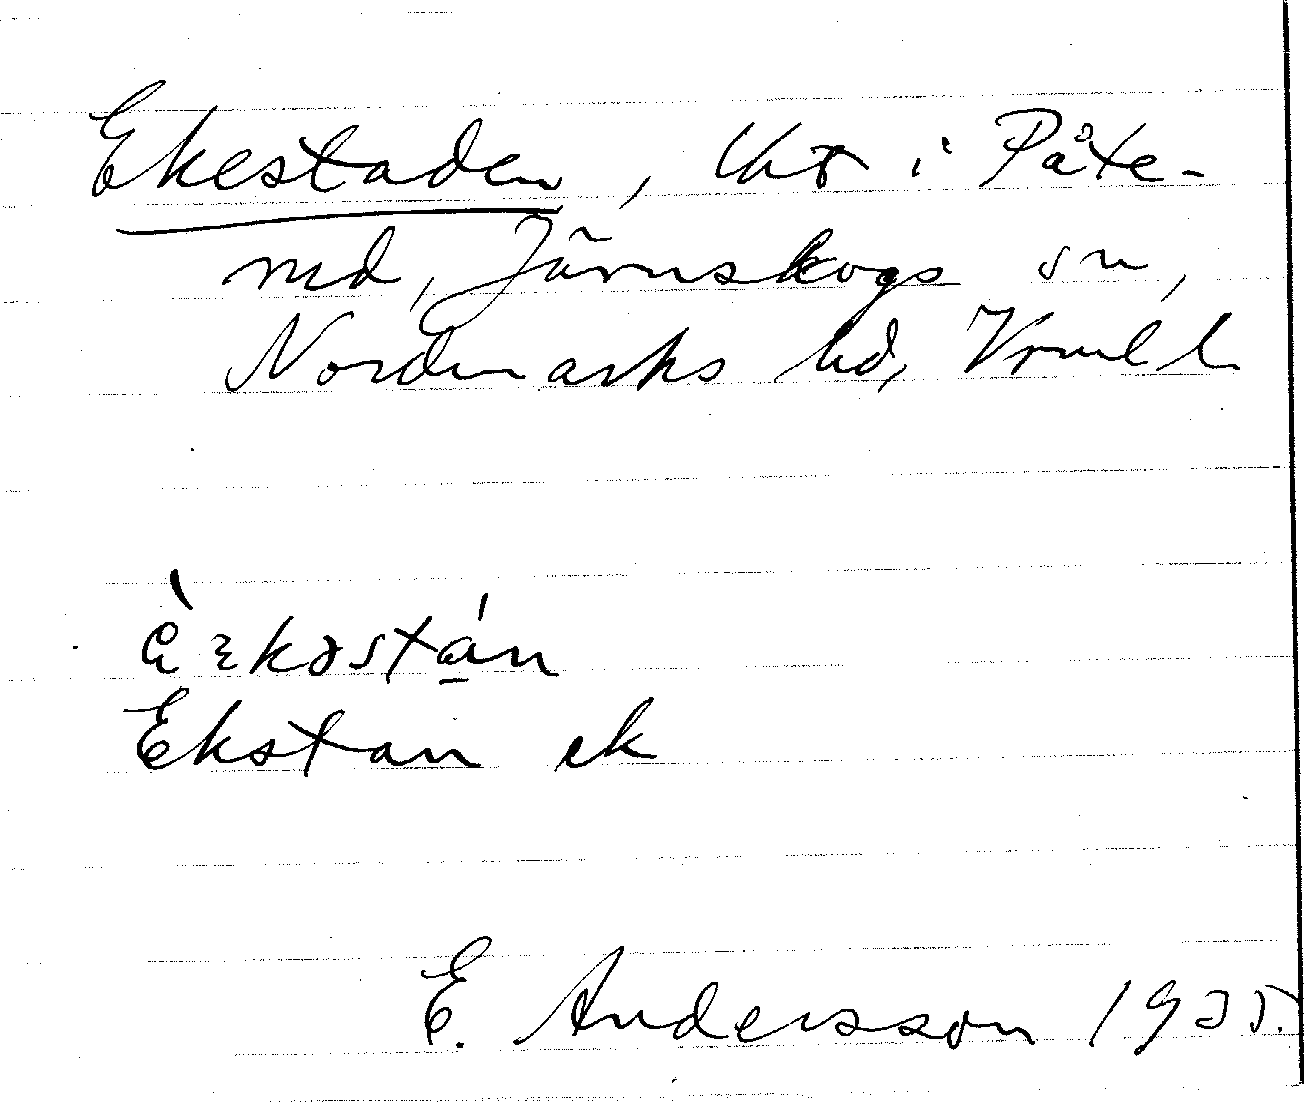 Ekestaden, tht i Påte-
rud, Järnskogs sn,
Nordmarks hd, Vrml l
È꞉kəstá̠n
Ekstan ek
E. Andersson 1935.